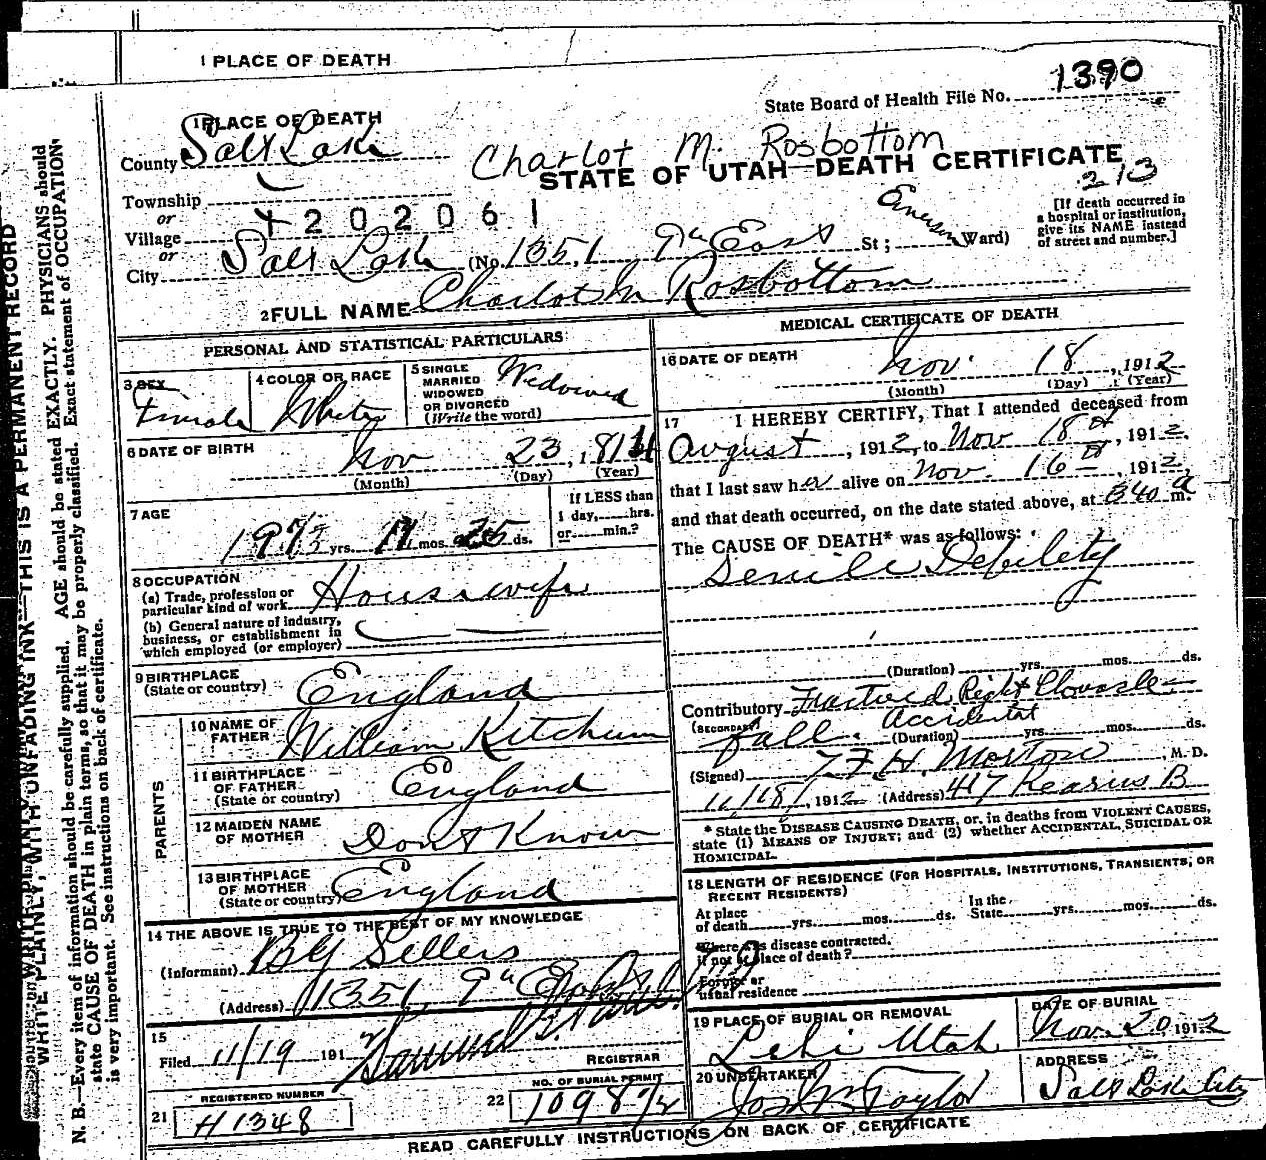 1 PLACE OF DEATH
State Board of Health File No. 1390
1 PLACE OF DEATH
County Salt Lake
Charlot M. Rosbottom
STATE OF UTAH—DEATH CERTIFICATE
213
Township
or
Village
4202061
or
City Salt Lake (No. 1351 9th East St; Ward)
[If death occurred in a hospital or institution, give its NAME instead of street and number.]
2 FULL NAME Charlot M Rosbottom
PERSONAL AND STATISTICAL PARTICULARS
3 SEX Female
4 COLOR OR RACE White
5 SINGLE MARRIED WIDOWED OR DIVORCED (Write the word) Widowed
6 DATE OF BIRTH Nov 23, 18
(Month) (Day) (Year)
7 AGE yrs. 11 mos. 25 ds.
If LESS than 1 day,.....hrs. or......min.?
8 OCCUPATION
(a) Trade, profession or particular kind of work Housewife
(b) General nature of industry, business, or establishment in which employed (or employer)
9 BIRTHPLACE (State or country) England
PARENTS
10 NAME OF FATHER William Ketchum
11 BIRTHPLACE OF FATHER (State or country) England
12 MAIDEN NAME OF MOTHER Dont Know
13 BIRTHPLACE OF MOTHER (State or country) England
14 THE ABOVE IS TRUE TO THE BEST OF MY KNOWLEDGE
(Informant) Sellers
(Address) 1351, 9th East
15
Filed 11/19 191 Samuel G.
REGISTRAR
REGISTERED NUMBER
21 H1348
NO. OF BURIAL PERMIT
22 10987½
MEDICAL CERTIFICATE OF DEATH
16 DATE OF DEATH Nov. 18, 1912
(Month) (Day) (Year)
17 I HEREBY CERTIFY, That I attended deceased from
August, 1912, to Nov 18th, 1912,
that I last saw her alive on Nov. 16th, 1912,
and that death occurred, on the date stated above, at 840 a m.
The CAUSE OF DEATH* was as follows:
Senile Debilety
(Duration) yrs. mos. ds.
Contributory Fractured Right Clavacle
(SECONDARY) fall. Accidental
(Duration) yrs. mos. ds.
(Signed) F. H. Morton, M. D.
11/18/, 1912 (Address) 417 Kearns B
* State the DISEASE CAUSING DEATH, or, in deaths from VIOLENT CAUSES, state (1) MEANS OF INJURY; and (2) whether ACCIDENTAL, SUICIDAL OR HOMICIDAL.
18 LENGTH OF RESIDENCE (FOR HOSPITALS, INSTITUTIONS, TRANSIENTS, OR RECENT RESIDENTS)
At place of death yrs. mos. ds. In the State yrs. mos. ds.
Where was disease contracted, if not at place of death?
Former or usual residence
19 PLACE OF BURIAL OR REMOVAL Lehi Utah
DATE OF BURIAL Nov. 20 1912
20 UNDERTAKER Taylor
ADDRESS Salt Lake City
READ CAREFULLY INSTRUCTIONS ON BACK OF CERTIFICATE
WRITE PLAINLY, WITH UNFADING INK—THIS IS A PERMANENT RECORD
N. B.—Every item of information should be carefully supplied. AGE should be stated EXACTLY. PHYSICIANS should
state CAUSE OF DEATH in plain terms, so that it may be properly classified. Exact statement of OCCUPATION
is very important. See instructions on back of certificate.